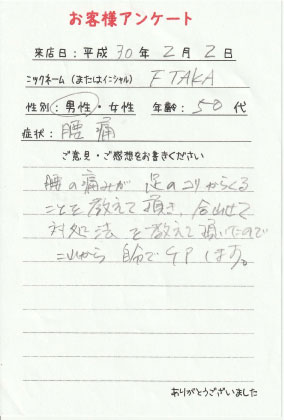 お客様アンケート
来店日：平成 30 年 2 月 2 日
ニックネーム（またはイニシャル） F TAKA
性別：男性・女性 年齢：50 代
症状：腰痛
ご意見・ご感想をお書きください
腰の痛みが 足のコリからくる
ことを教えて頂き、合わせて
対処法を教えて頂いたので
これから 自分でケアします。
ありがとうございました